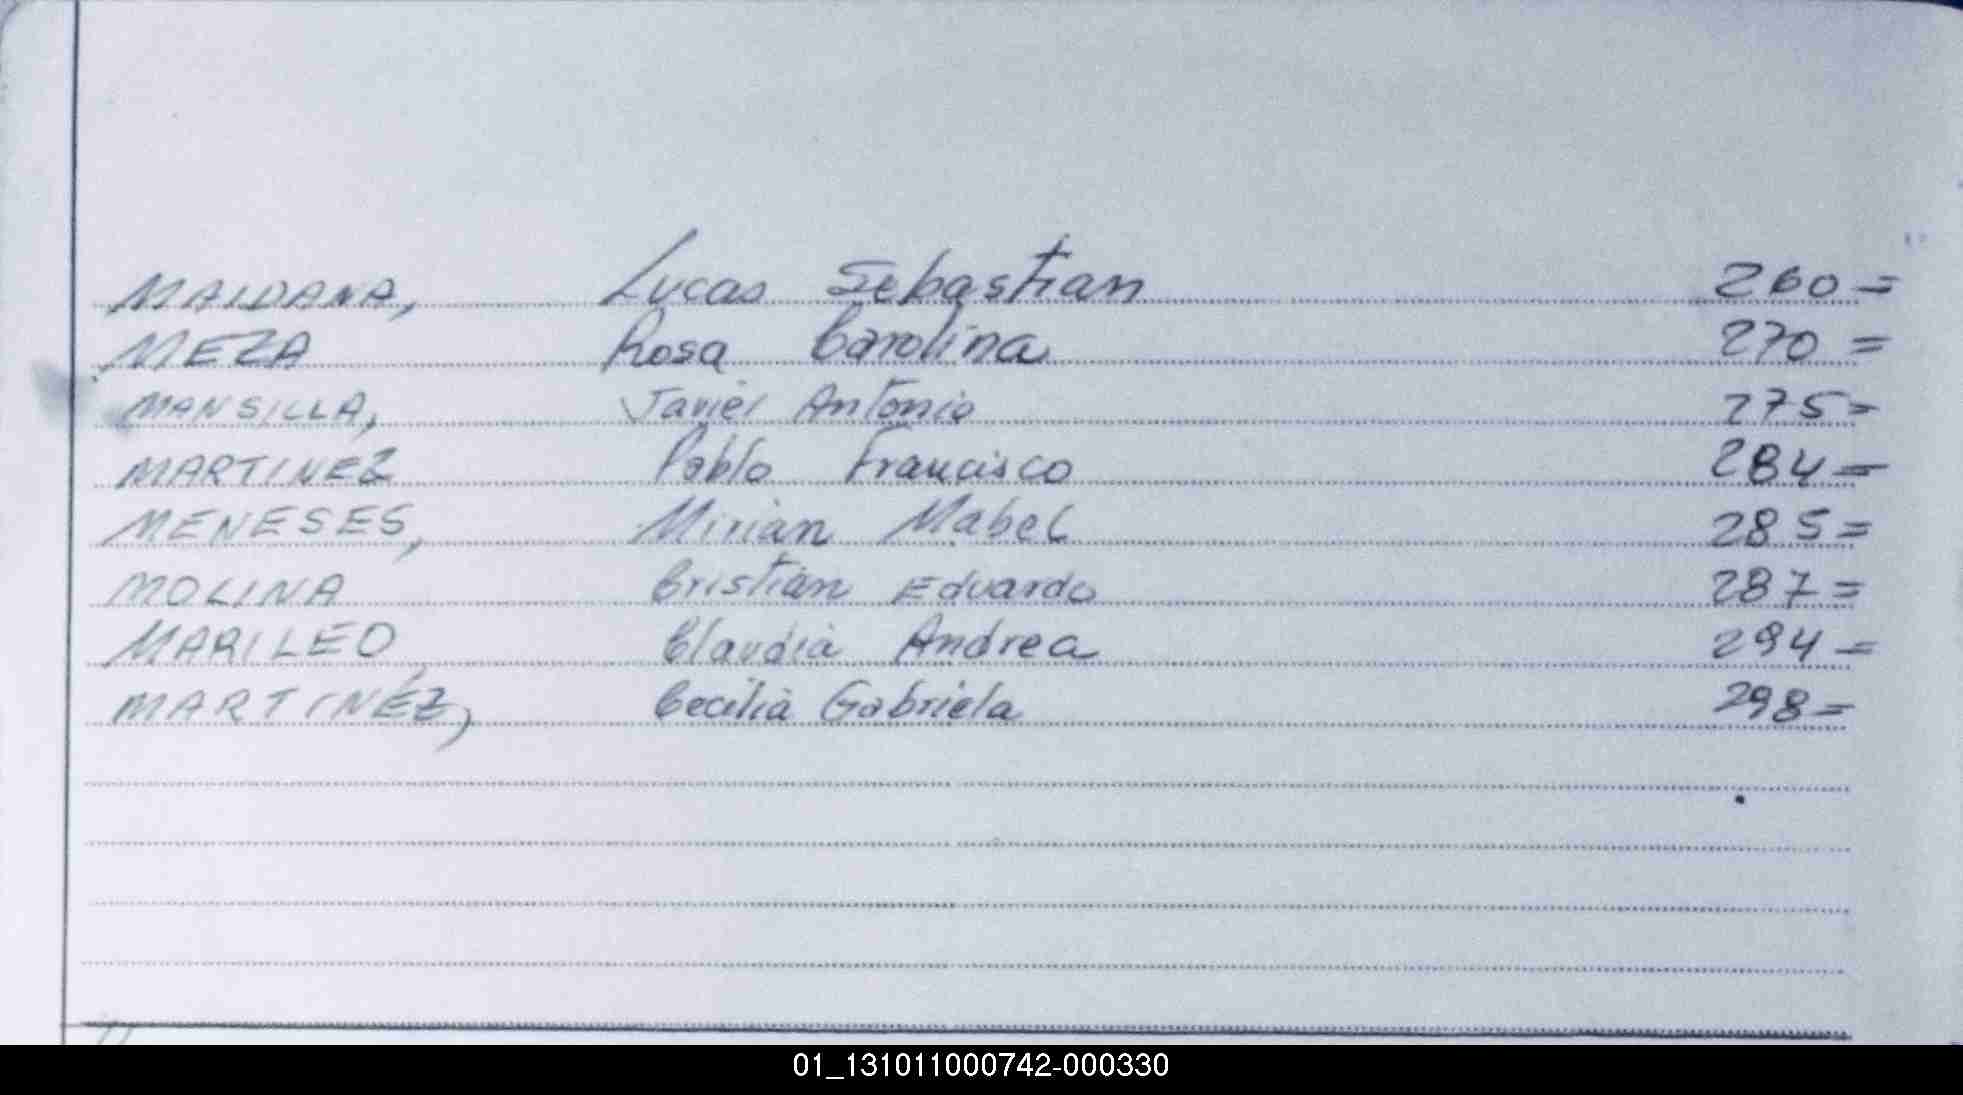 MALDANA, Lucas Sebastian 260=
MEZA Rosa Carolina 270=
MANSILLA, Javier Antonio 275=
MARTINEZ Pablo Francisco 284=
MENESES, Mirian Mabel 285=
MOLINA Cristian Eduardo 287=
MARILEO, Claudia Andrea 294=
MARTINEZ, Cecilia Gabriela 298=
01_131011000742-000330